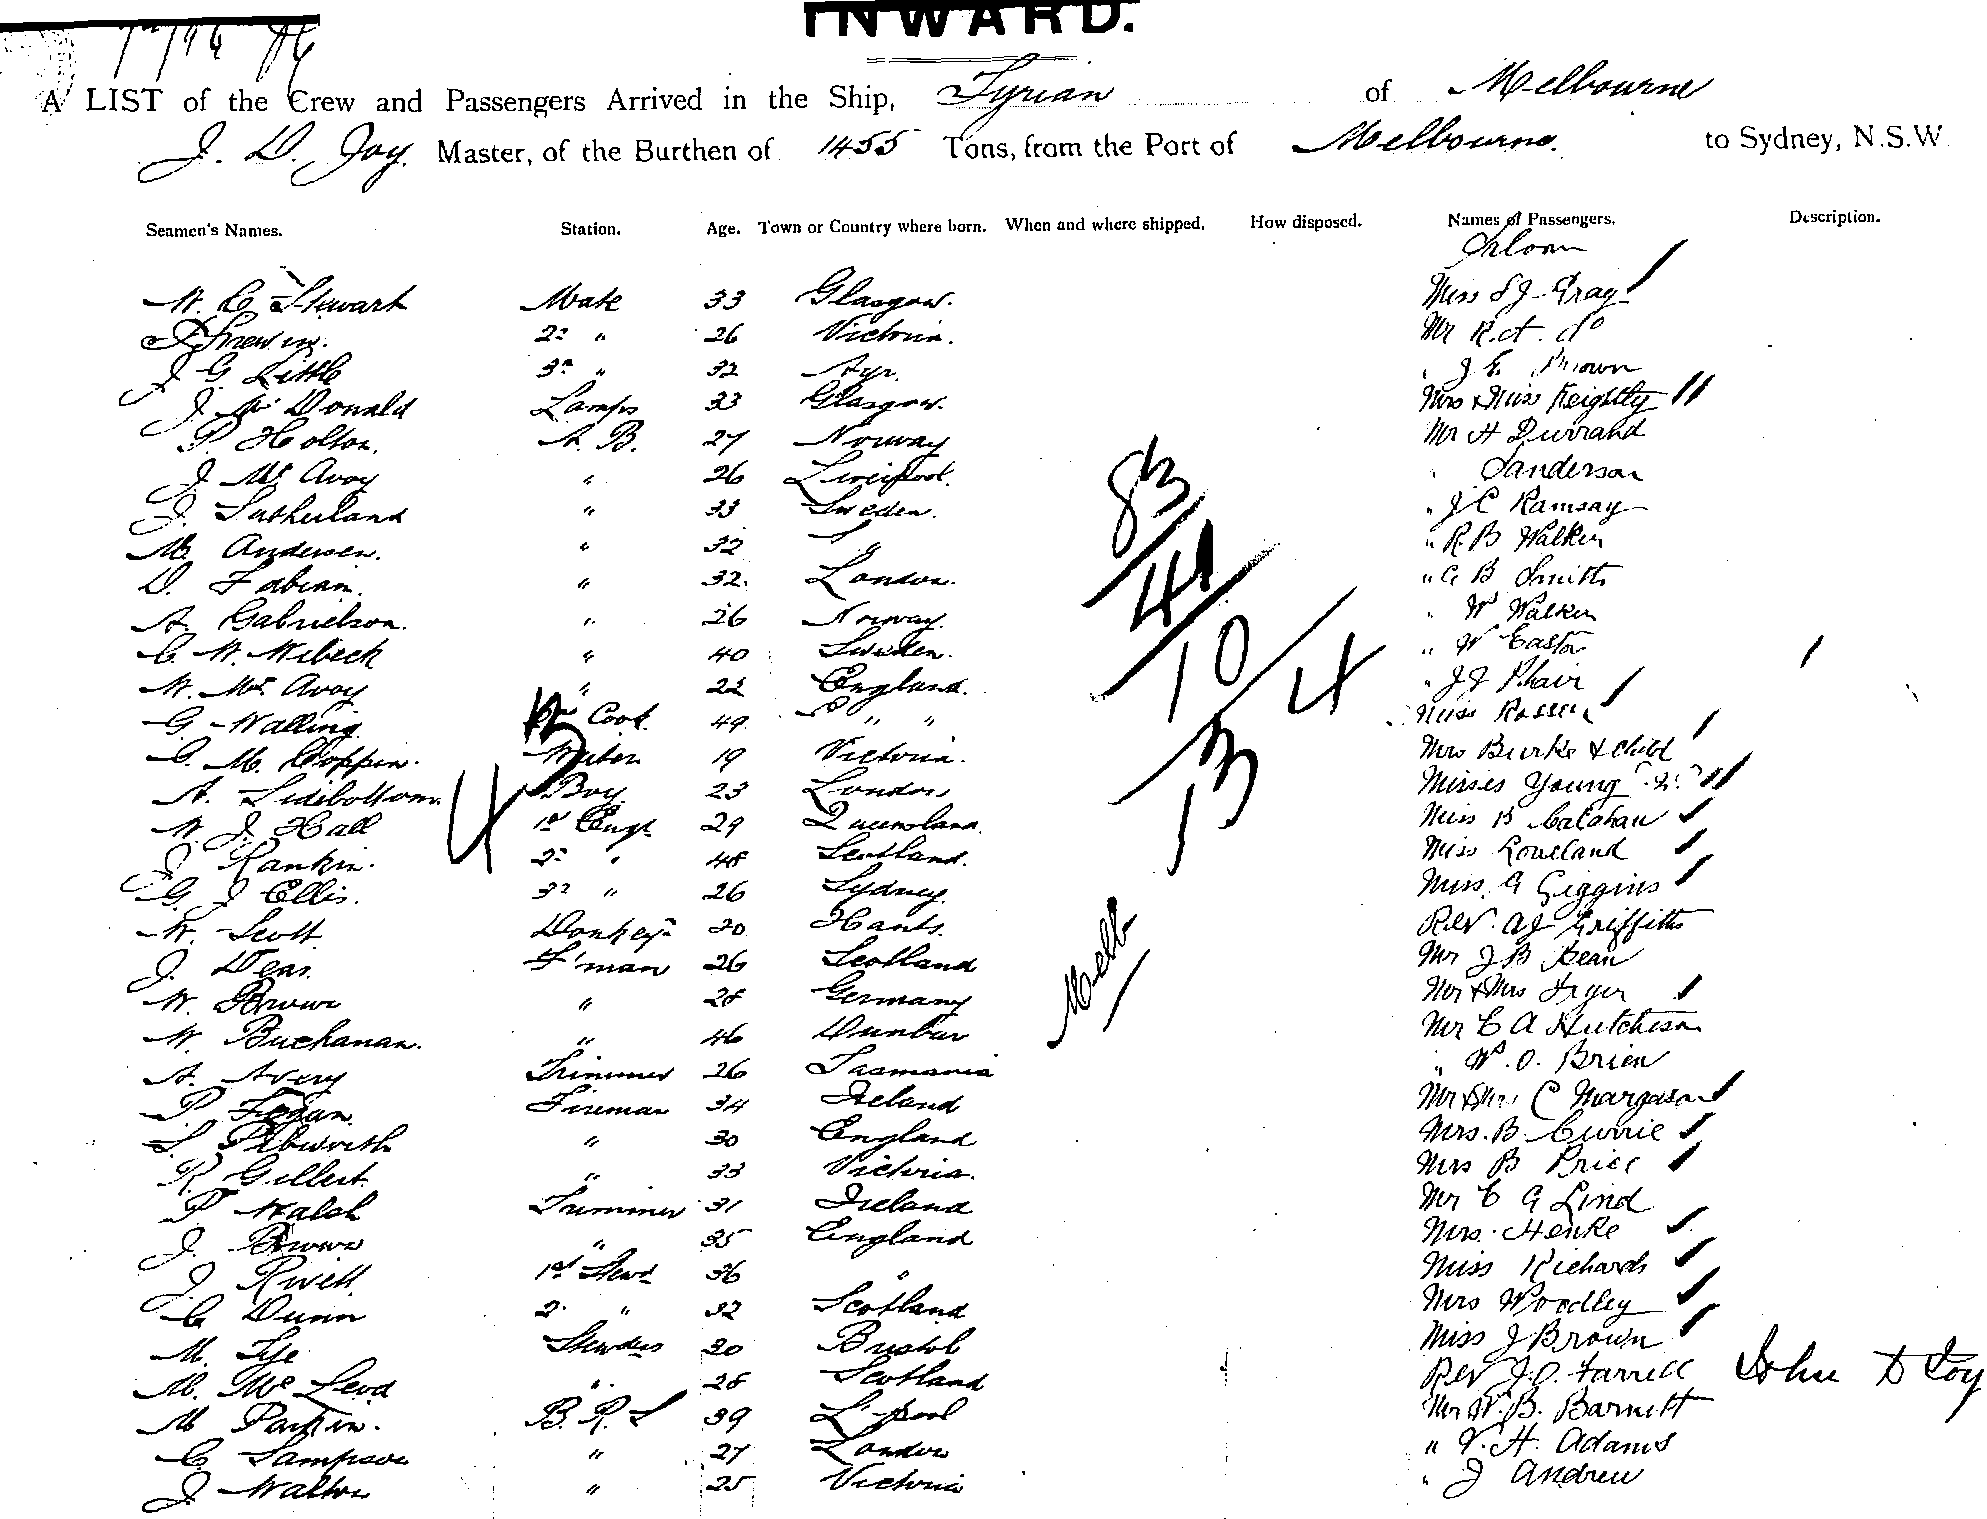 INWARD.
A LIST of the Crew and Passengers Arrived in the Ship, Tyrian of Melbourne
J. D. Joy. Master, of the Burthen of 1455 Tons, from the Port of Melbourne. to Sydney, N.S.W
Seamen's Names. Station. Age. Town or Country where born. When and where shipped. How disposed. Names of Passengers. Description.
Saloon
W. C. Stewart Mate 33 Glasgow. Miss S J Gray
26 Victoria. Mr R. A. Do
J G Little 3rd " 32 Ayr. " J E Brown
J Mc Donald Lamps 33 Glasgow. Mrs & Miss Keightly
P. Holton. A. B. 27 Norway Mr H Durrand
J Mc Avoy " 26 Liverpool. " Sanderson
J. Sutherland " 33 Sweden. " J C Ramsay
M. Andersen. " 32 " R. B Walker
D. Fabian. " 32. London. " G B Smith
A. Gabrielson. " 26 Norway. " W Walker
C. W. Wibeck " 40 Sweden. " W Easton
W. Mc Avoy " 22 England. " J J Phair
G. Walling Cook. 49. " " Miss Rosser
C. M. Coppin. Waiter 19 Victoria. Mrs Burke & Child
A. Sidebottom. Boy 23 London Misses Young (2)
W. J. Hall 1st Engr 29 Queensland. Miss B Calahan
J Rankin. 2nd " 48 Scotland. Miss Loveland
G. J Ellis. 3rd " 26 Sydney. Miss. G Giggins
W. Scott Donkeyn 30 Hants. Rev. A J Griffiths
J. Dear. F'man 26 Scotland Mr J B Bean
W. Brown " 28 Germany Mr & Mrs Fryer
W. Buchanan. " 46 Dunbar Mr C A Hutchison
A. Avery Trimmer 26 Tasmania " W. O. Brien
P. Fogan Fireman 34 Ireland Mr & Mrs C Margason
S. Pebworth " 30 England Mrs. B Currie
R. Gillert. " 33 Victoria. Mrs B Price
P Walsh Trimmer 31 Ireland Mr C G Lind
J. Brown " 35 England Mrs. Henke
J. Rivett 1st Stewd 36 " Miss Richards
C Dunn 2nd " 32 Scotland Mrs Woodley
M. Tye Stewdess 30 Bristol Miss J Brown
M. Mc Leod " 28 Scotland Rev J. O. Farrell John D Joy
M Parkin. B. R. S 39 L'pool Mr W. B. Barnett
C. Sampson " 27 London " V. H. Adams
J. Walton " 25 Victoria " J Andrew
83
41
10
4
13
4
Melb